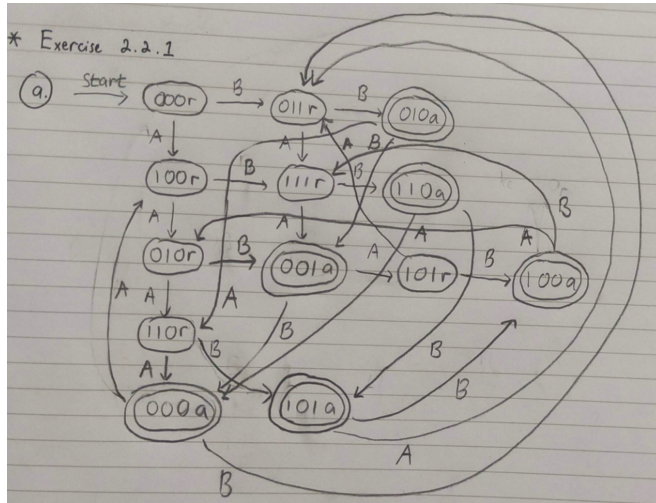 * Exercise 2.2.1
a. Start 000r B 011r B 010a
A A A B
100r B 111r B 110a B
A A A A
010r B 001a A 101r B 100a
A A A B B
110r B
A B B
000a 101a A
B